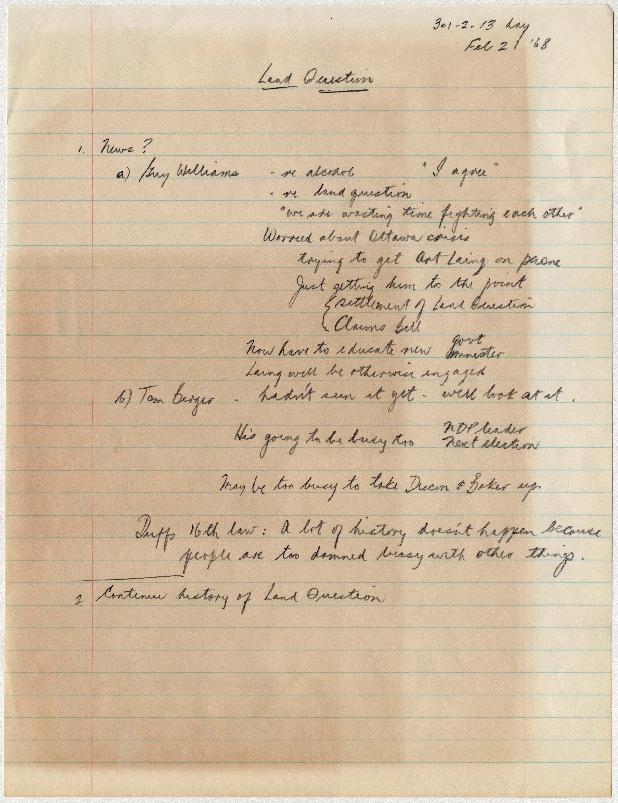 301-2-13 day
Feb 21 '68
Land Question
1. News?
a) Guy Williams - re alcohol "I agree"
- re land question
"we are wasting time fighting each other"
Worried about Ottawa crisis
trying to get Art Laing on phone
Just getting him to the point
{ settlement of Land Question
{ Claims bill
Now have to educate new govt
minister
Laing will be otherwise engaged
b) Tom Berger - hadn't seen it yet - we'll look at it.
He's going to be busy too NDP leader
next election
May be too busy to take Dixon & Baker up
Duffs 16th law: A lot of history doesn't happen because
people are too damned busy with other things.
2. Continue history of Land Question